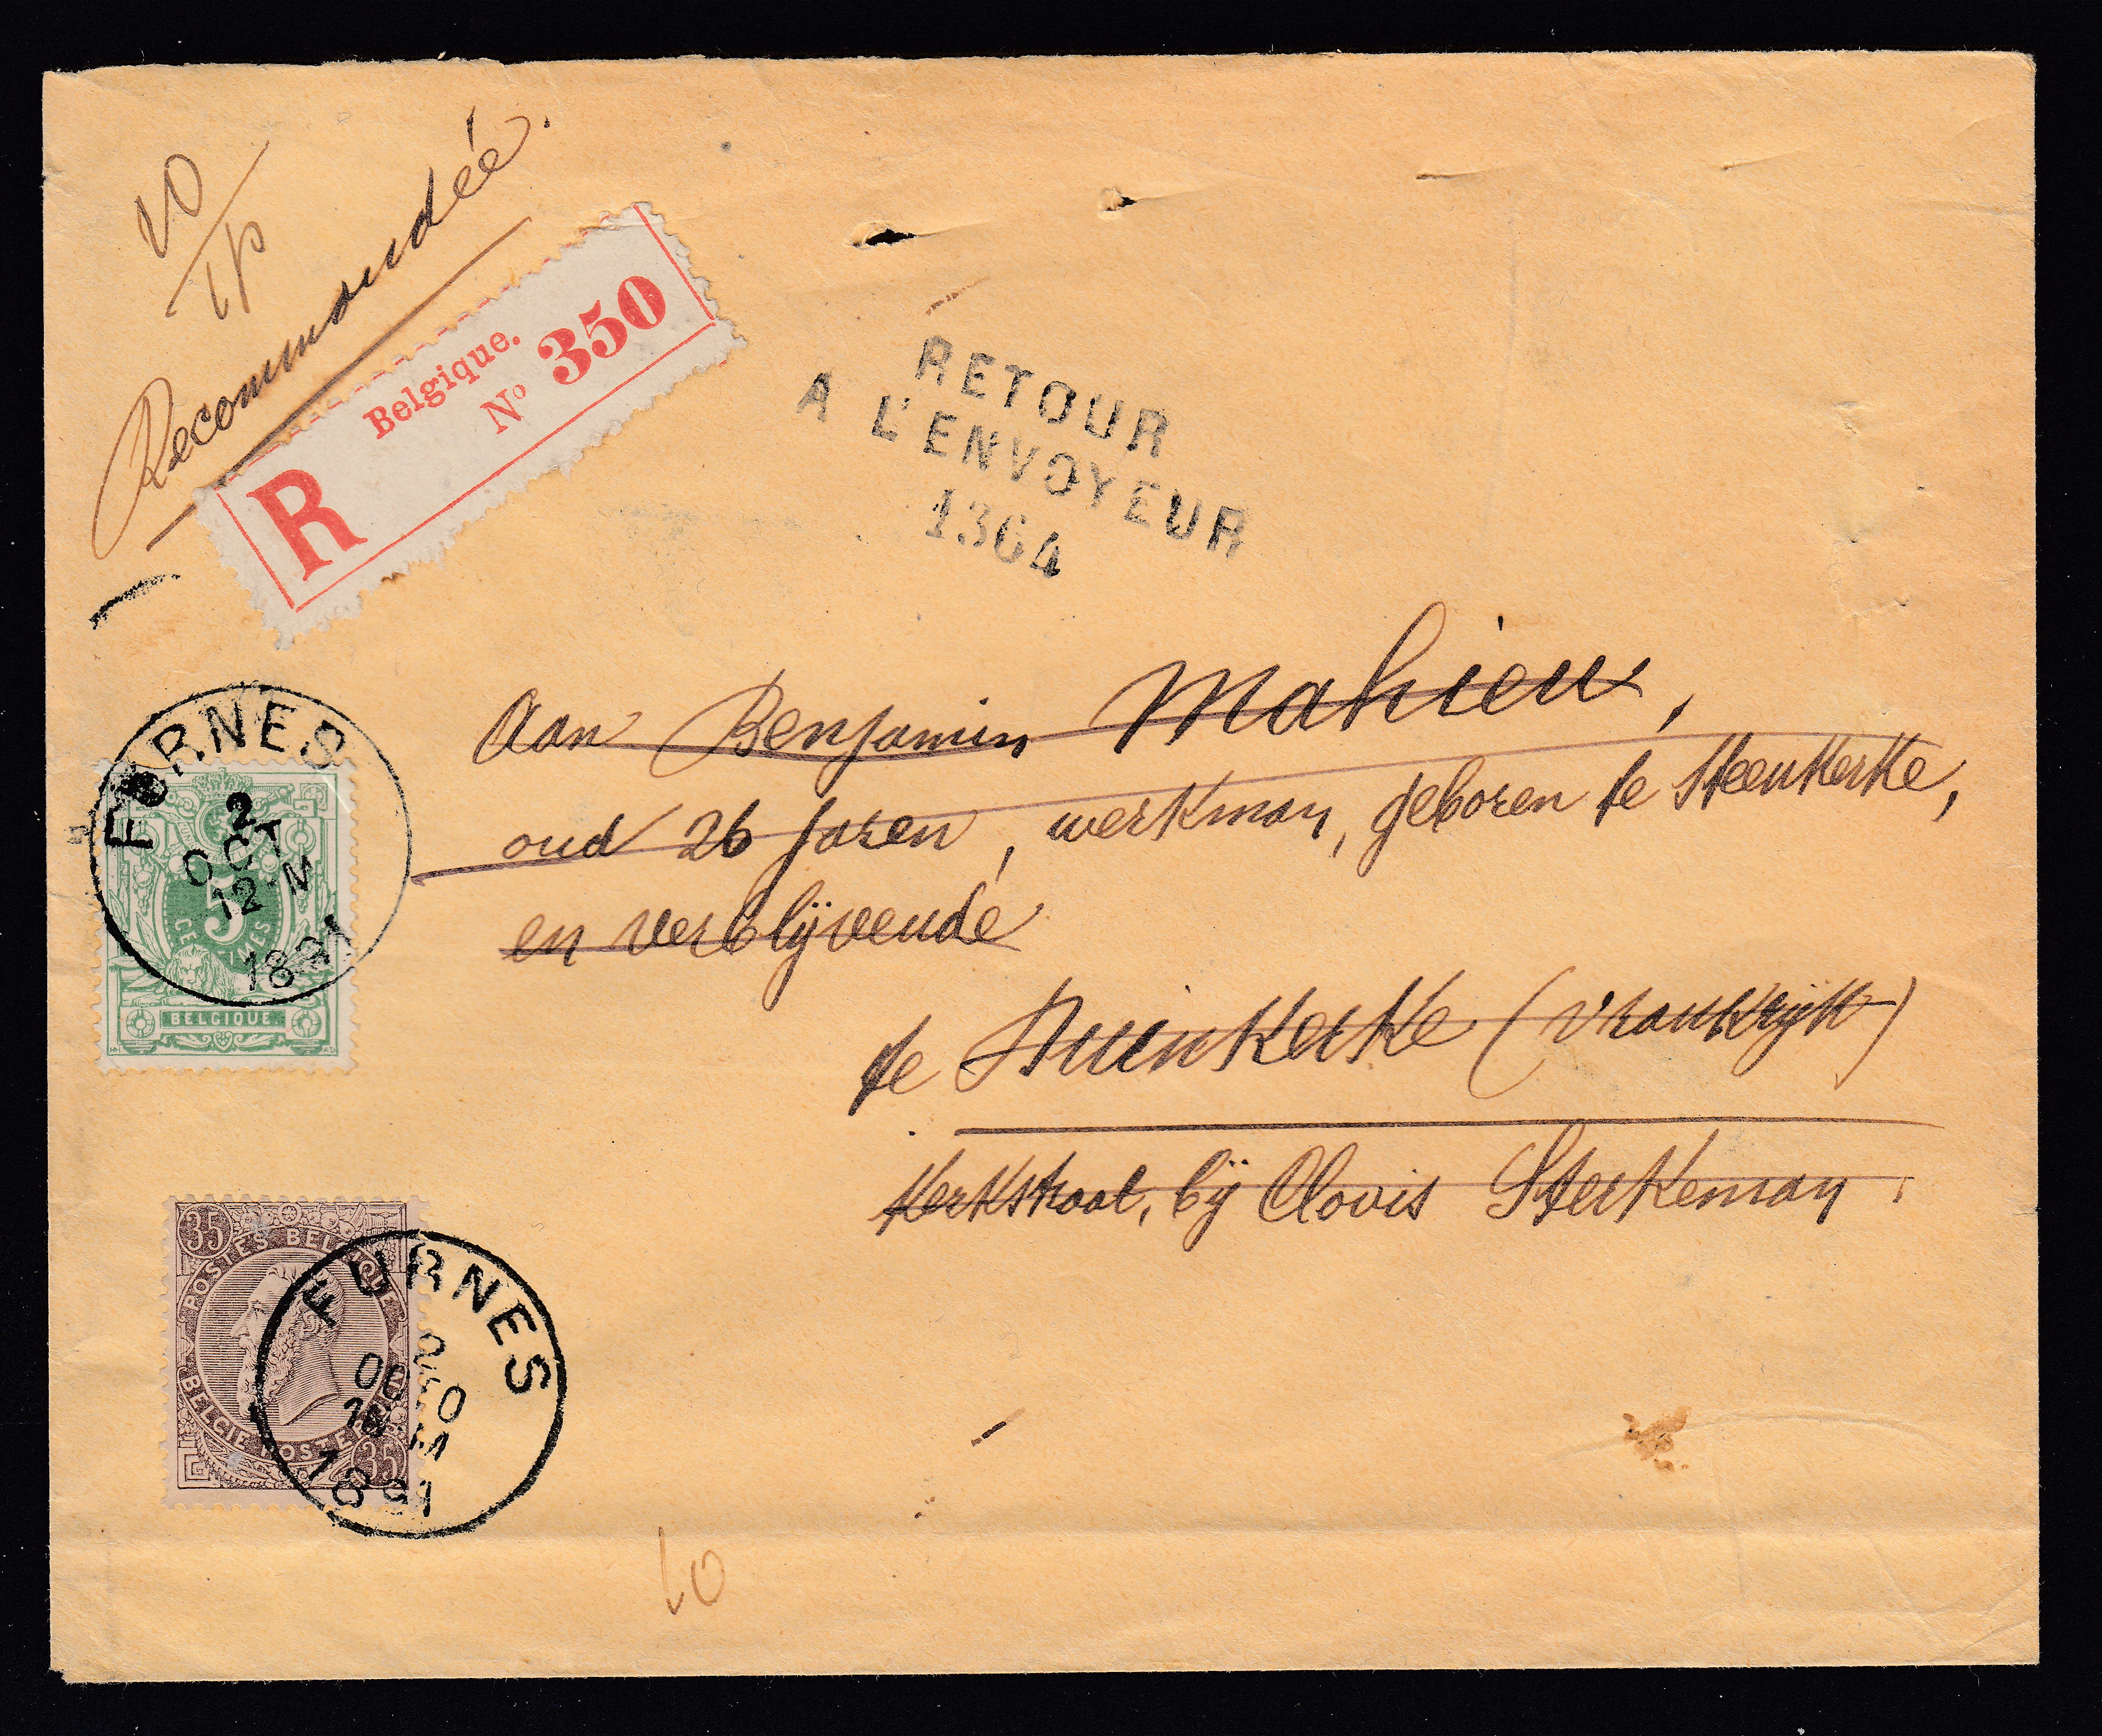 Recommandée.
R
Belgique.
No 350
RETOUR
A L'ENVOYEUR
1364
FURNES
2
OCT
12-M
1891
5
CENTIMES
BELGIQUE
Aan Benjamin Mahieu,
oud 26 jaren, werkman, geboren te Steenkerke,
en verblijvende
te Duinkerke (Vrankrijk)
Kerkstraat, bij Clovis Sterkeman.
35
POSTES BELGIQUE
BELGIE POSTERIJEN
35
FURNES
1891